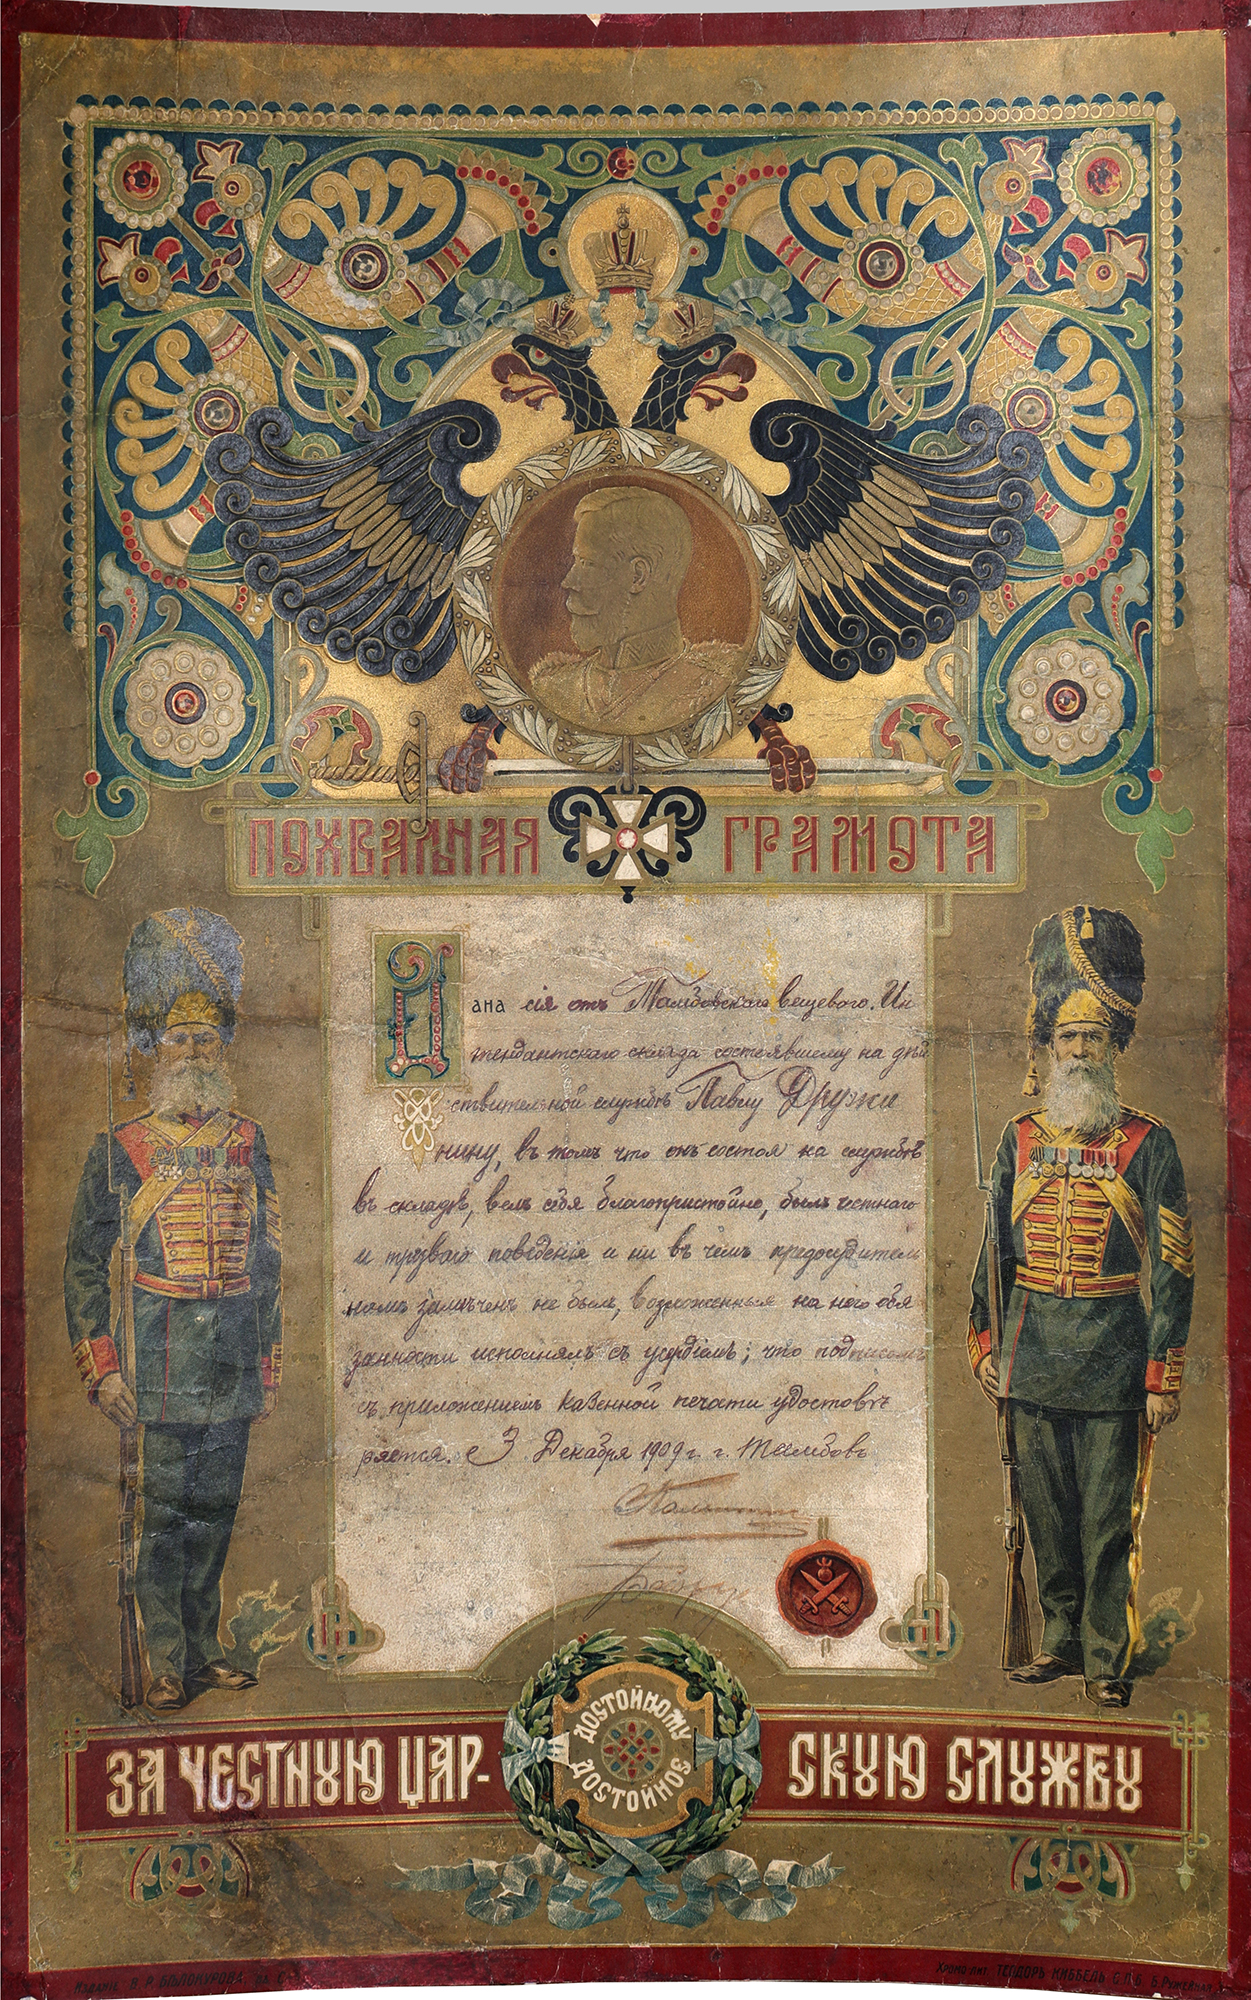 ПОХВАЛЬНАЯ ГРАМОТА
Дана сія отъ Тамбовскаго вещевого Ин
тендантскаго склада состоявшему на дѣй
ствительной службѣ Павлу Дружи
нину, въ томъ что онъ состоя на службѣ
въ складѣ, велъ себя благопристойно, былъ честнаго
и трезваго поведенія и ни въ чемъ предосудитель
номъ замѣченъ не былъ, возложенныя на него обя
занности исполнялъ съ усердіемъ; что подписомъ
съ приложеніемъ казенной печати удостовѣ
ряется. 3 Декабря 1909 г. г. Тамбовъ
ДОСТОЙНОМУ
ДОСТОЙНОЕ
ЗА ЧЕСТНУЮ ЦАР-
СКУЮ СЛУЖБУ
Изданіе В. Р. БѢЛОКУРОВА
Хромо-лит. ТЕОДОРЪ КИББЕЛЬ С.П.Б. Б. Ружейная